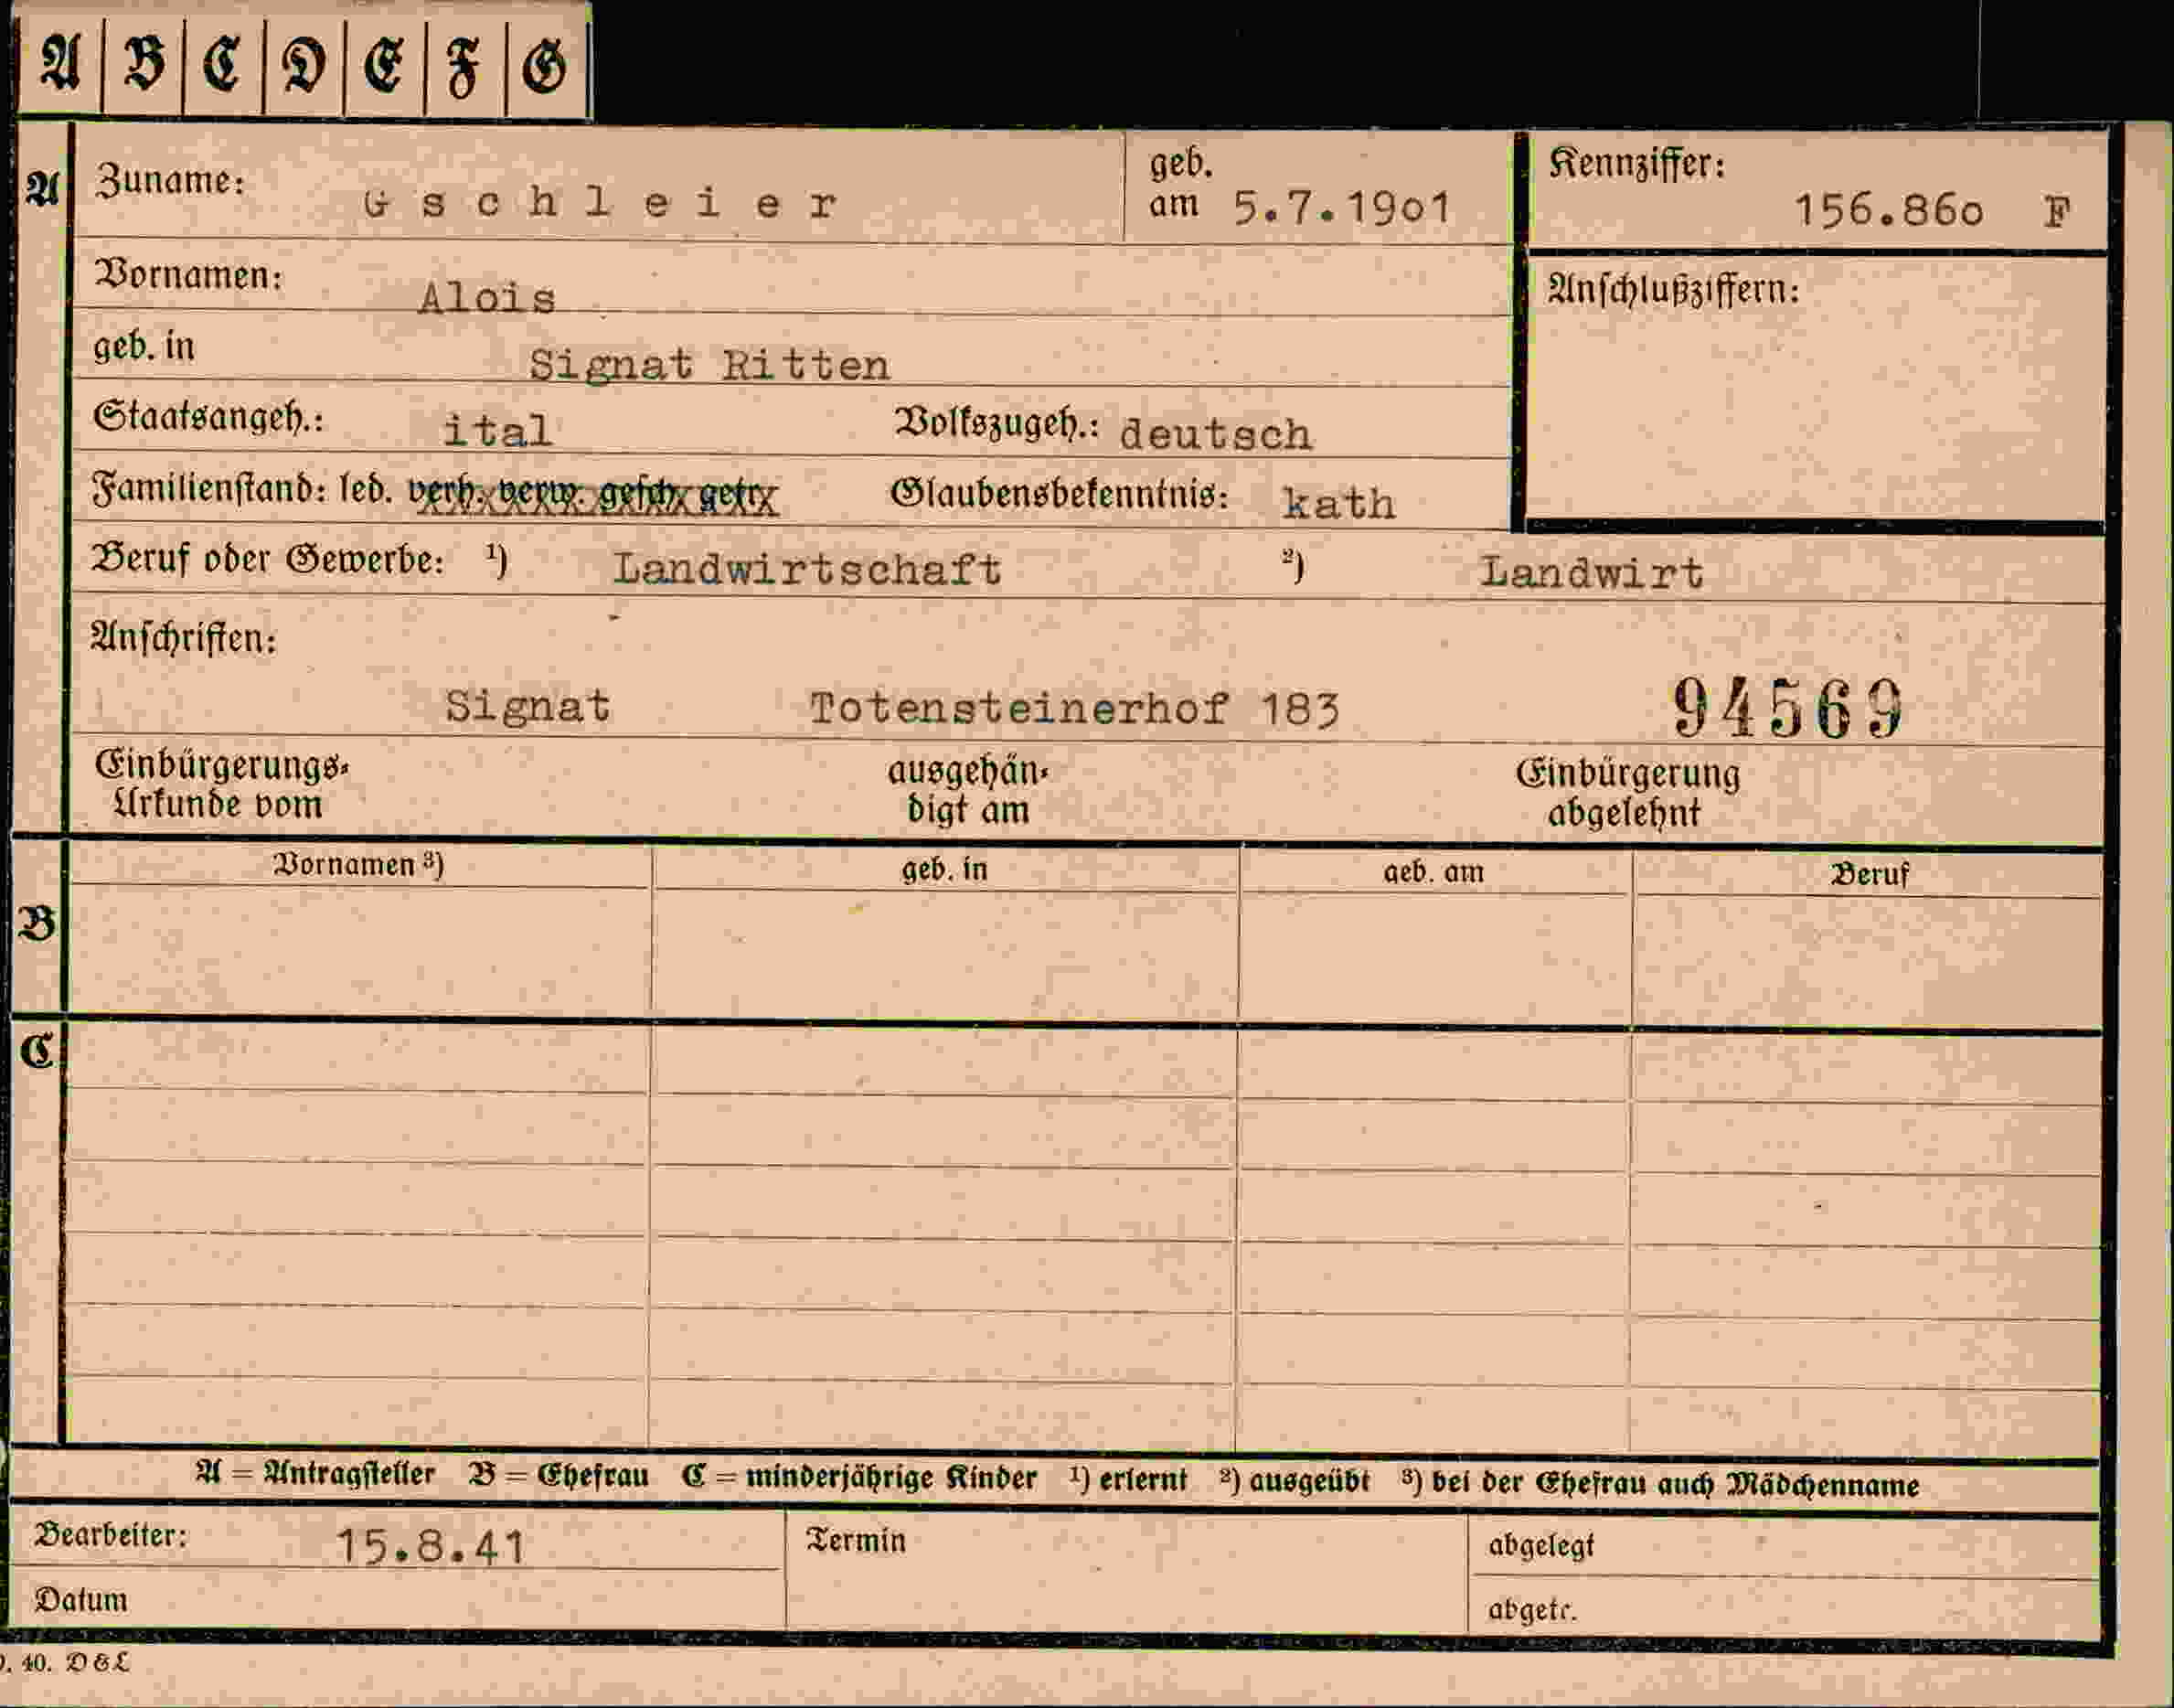 A B C D E F G
A Zuname: Gschleier geb. am 5.7.19o1 Kennziffer: 156.86o F
Vornamen: Alois Anschlußziffern:
geb. in Signat Ritten
Staatsangeh.: ital Volkszugeh.: deutsch
Familienstand: led. verh. verw. gesch. getr. Glaubensbekenntnis: kath
Beruf oder Gewerbe: ¹) Landwirtschaft ²) Landwirt
Anschriften:
Signat Totensteinerhof 183 94569
Einbürgerungs-Urkunde vom ausgehändigt am Einbürgerung abgelehnt
Vornamen ³) geb. in geb. am Beruf
B
C
A = Antragsteller B = Ehefrau C = minderjährige Kinder ¹) erlernt ²) ausgeübt ³) bei der Ehefrau auch Mädchenname
Bearbeiter: 15.8.41 Termin abgelegt
Datum abgetr.
40. D & L